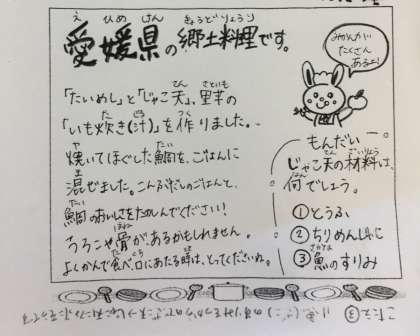 愛媛県の郷土料理です。
えひめけん きょうどりょうり
みかんが
たくさん
あるよ!
「たいめし」と「じゃこ天」、里芋の
てん さといも
「いも炊き(汁)」を作りました。
焼いてほぐした鯛を、ごはんに
混ぜました。こんぶだしのごはんと、
鯛のおいしさをたのしんでください!
うろこや骨があるかもしれません。
よくかんで食べ、口にあたる時は、とってくださいね。
もんだい
じゃこ天の材料は、
何でしょう。
①とうふ
②ちりめんじゃこ
③魚のすりみ
こたえ ③